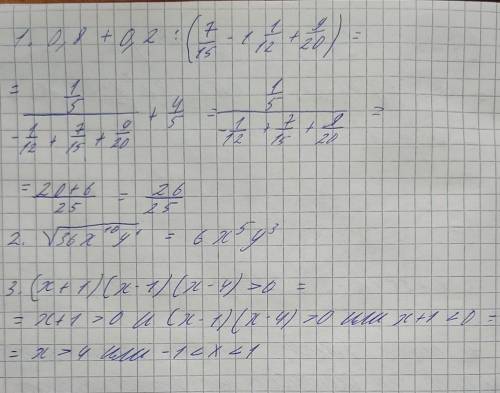 1. 0,8 + 0,2 : (7/15 - 1 1/12 + 9/20) =
= (1/5)/(-1/12 + 7/15 + 9/20) + 4/5 = (1/5)/(-1/12 + 7/15 + 9/20) =
= (20+6)/25 = 26/25
2. √36x¹⁰y = 6x⁵y³
3. (x+1)(x-1)(x-4)>0 =
= x+1>0 и (x-1)(x-4)>0 или x+1<0 =
= x>4 или -1<x<1